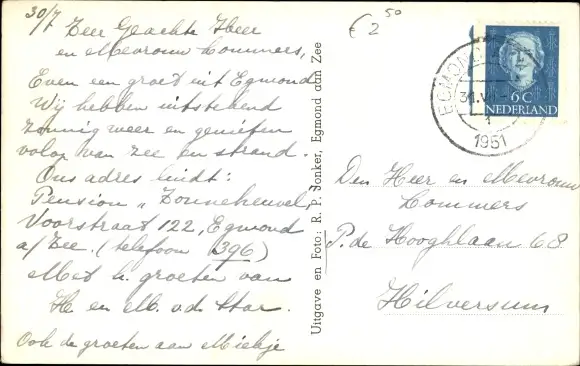 30/7 Zeer Geachte Heer
en Mevrouw Lommers,
Even een groet uit Egmond
Wij hebben uitstekend
zonnig weer en genieten
volop van zee en strand.
Ons adres luidt:
Pension „Zonneheuvel,
Voorstraat 122, Egmond
a/Zee. (telefoon 396)
Met h. groeten van
H. en M. v.d. Star.
Ook de groeten aan Miekje
Uitgave en Foto: R. P. Jonker, Egmond aan Zee
€ 2 50
EGMOND
31.VII
1
1951
6C
NEDERLAND
Den Heer en Mevrouw
Lommers
P. de Hooghlaan 68
Hilversum